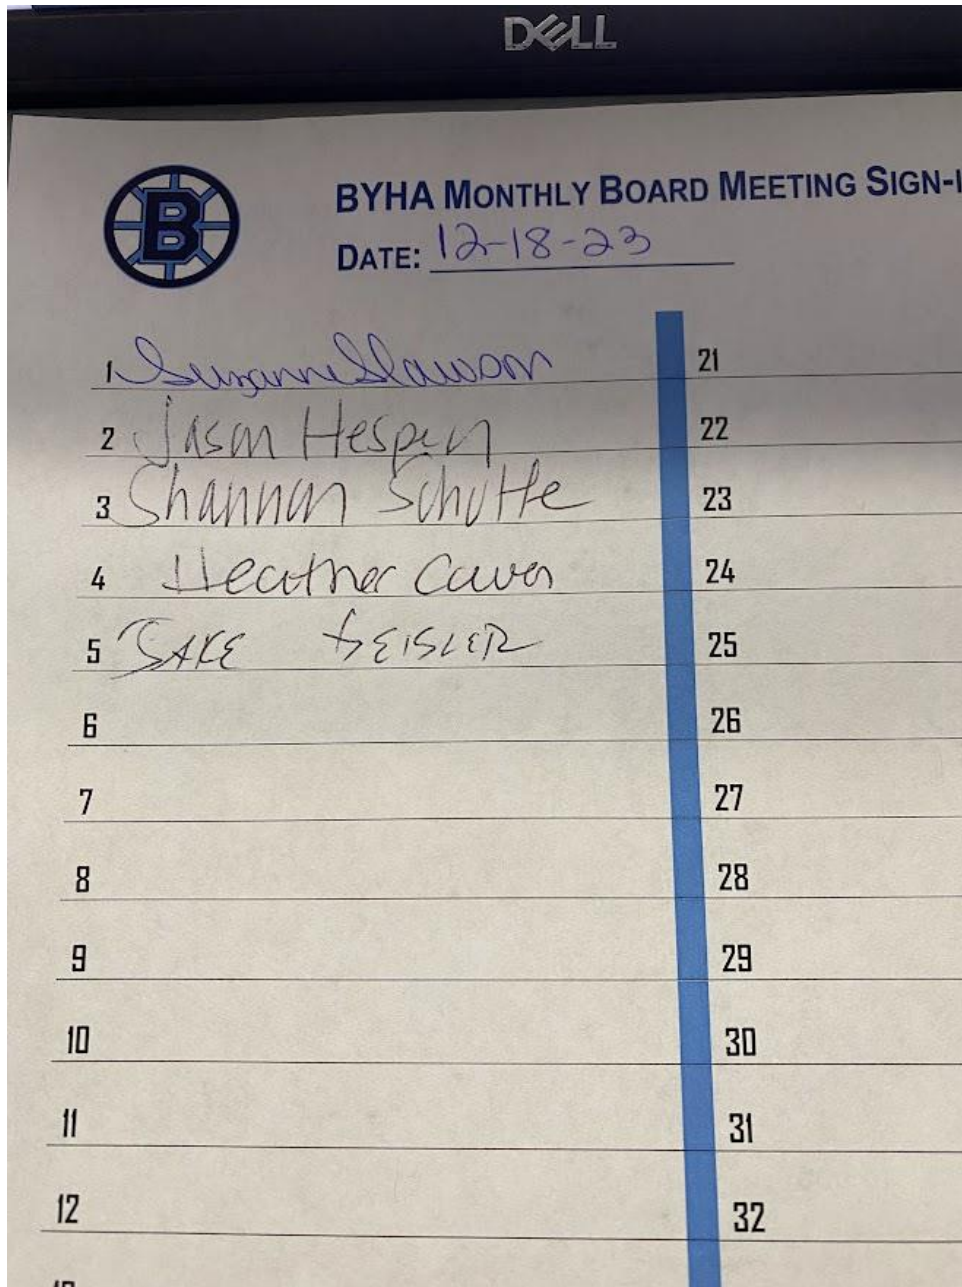 DELL
B
BYHA MONTHLY BOARD MEETING SIGN-I
DATE: 12-18-23
1 Suzanne Slawson
2 Jason Hespen
3 Shannon Schutte
4 Heather
5 JAKE GEISLER
6
7
8
9
10
11
12
21
22
23
24
25
26
27
28
29
30
31
32